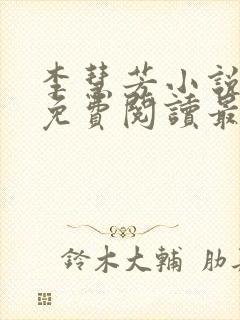 李慧芳小說
免費閱讀最
鈴木大輔 肋